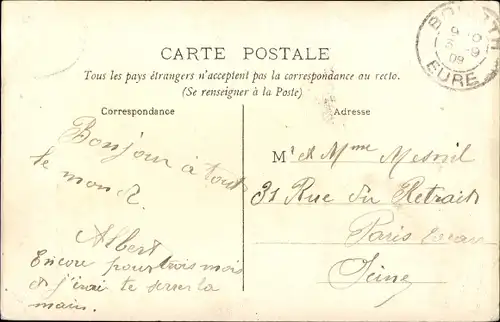 CARTE POSTALE
Tous les pays étrangers n'acceptent pas la correspondance au recto.
(Se renseigner à la Poste)
Correspondance
Adresse
Bonjour à tout
le monde
Albert
Encore pour trois mois
et j'irai te serrer la
main.
Mr et Mme Mesnil
31 Rue du Retrait
Paris
Seine
09
EURE